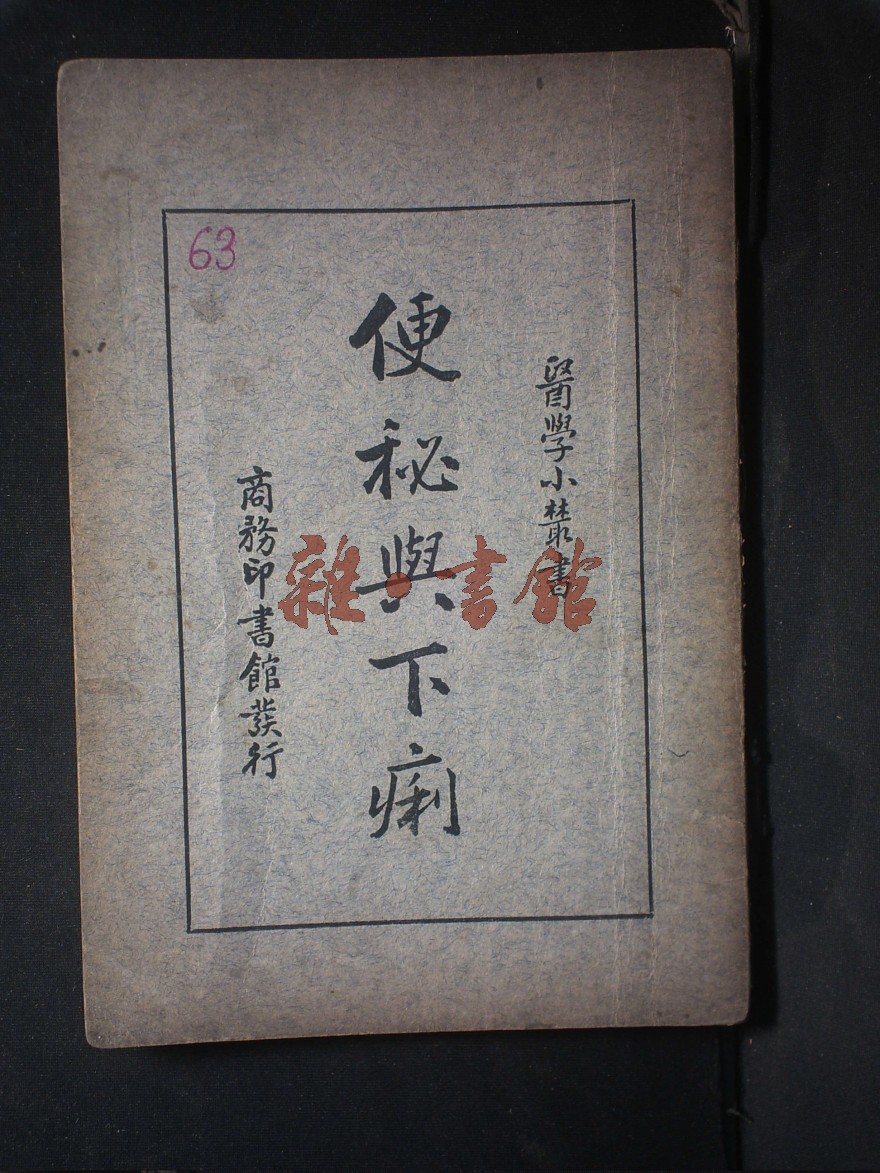 63
醫學小叢書
便秘與下痢
商務印書館發行
雜·書館